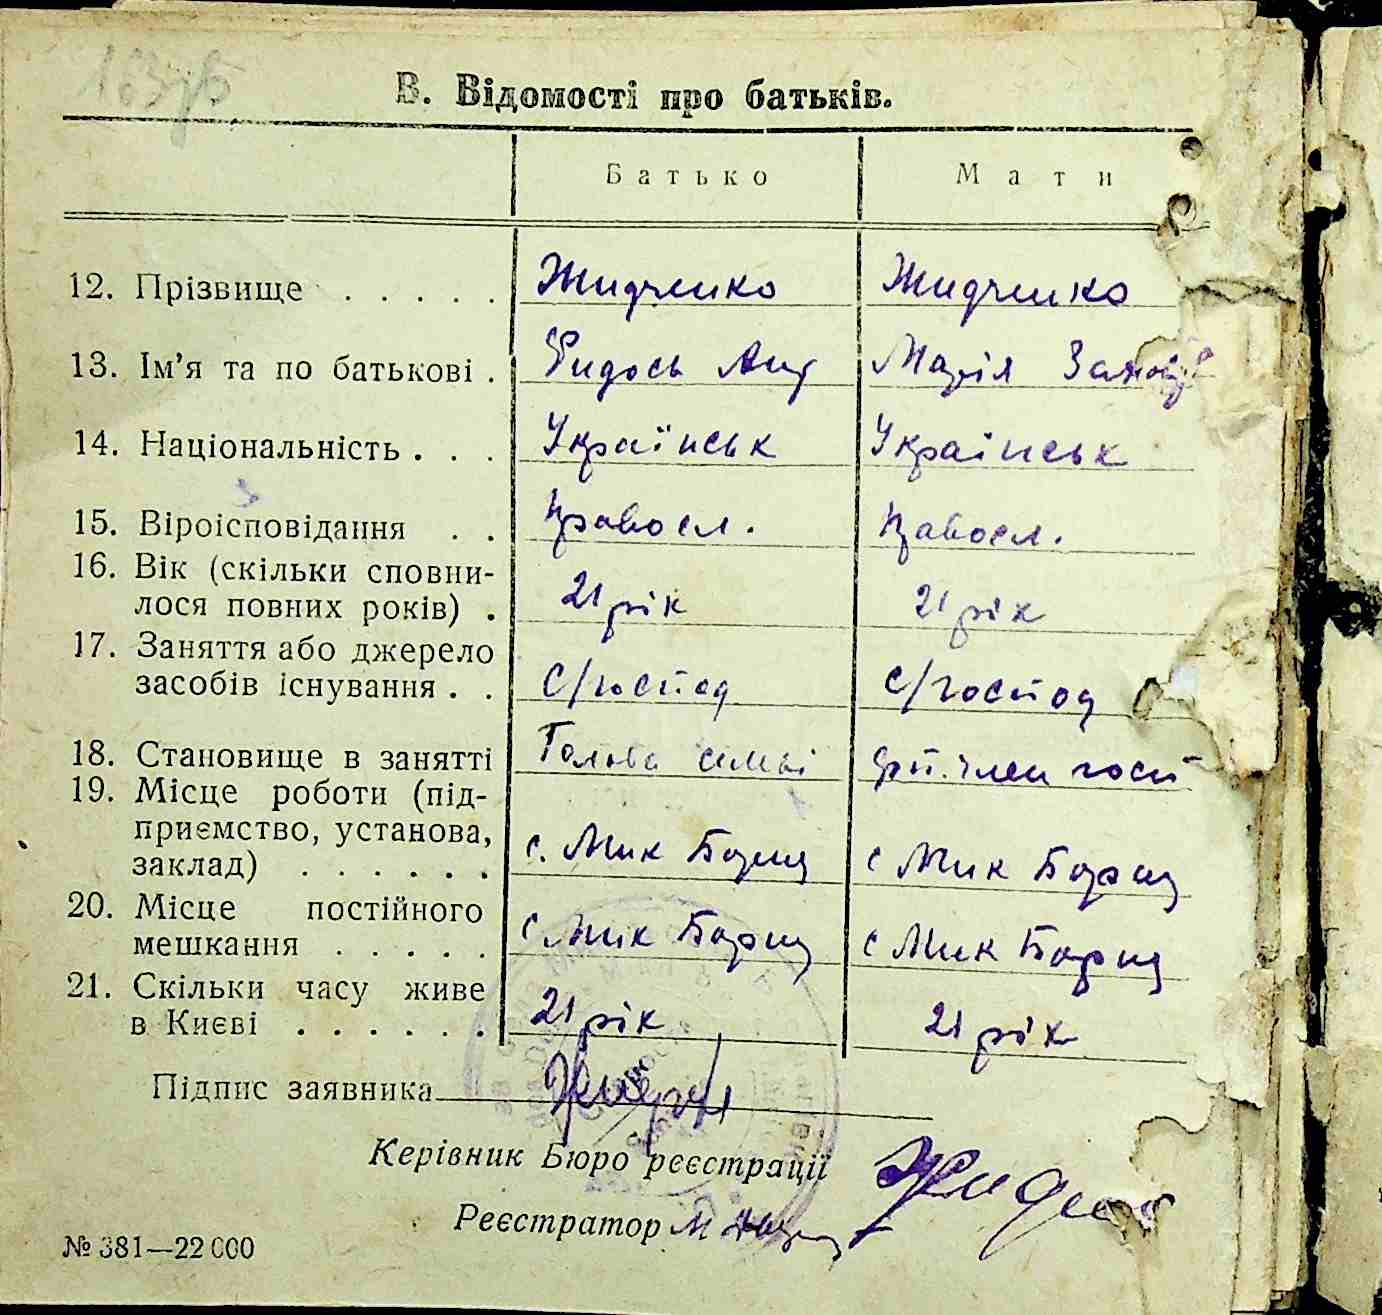 В. Відомості про батьків.
Батько Мати
12. Прізвище . . . . . Жидченко Жидченко
13. Ім’я та по батькові . Фидось Анд Марія
14. Національність . . . Українськ Українськ
15. Віроісповідання . . правосл. правосл.
16. Вік (скільки сповни-
лося повних років) . 21 рік 21 рік
17. Заняття або джерело
засобів існування . . с/господ с/господ
18. Становище в занятті Голова симьі член госп
19. Місце роботи (під-
приємство, установа,
заклад) . . . . . . с. Мик Борщ с Мик Борщ
20. Місце постійного
мешкання . . . . . с Мик Борщ с Мик Борщ
21. Скільки часу живе
в Києві . . . . . . 21 рік 21 рік
Підпис заявника
Керівник Бюро реєстрації
Реєстратор
№ 381—22 000